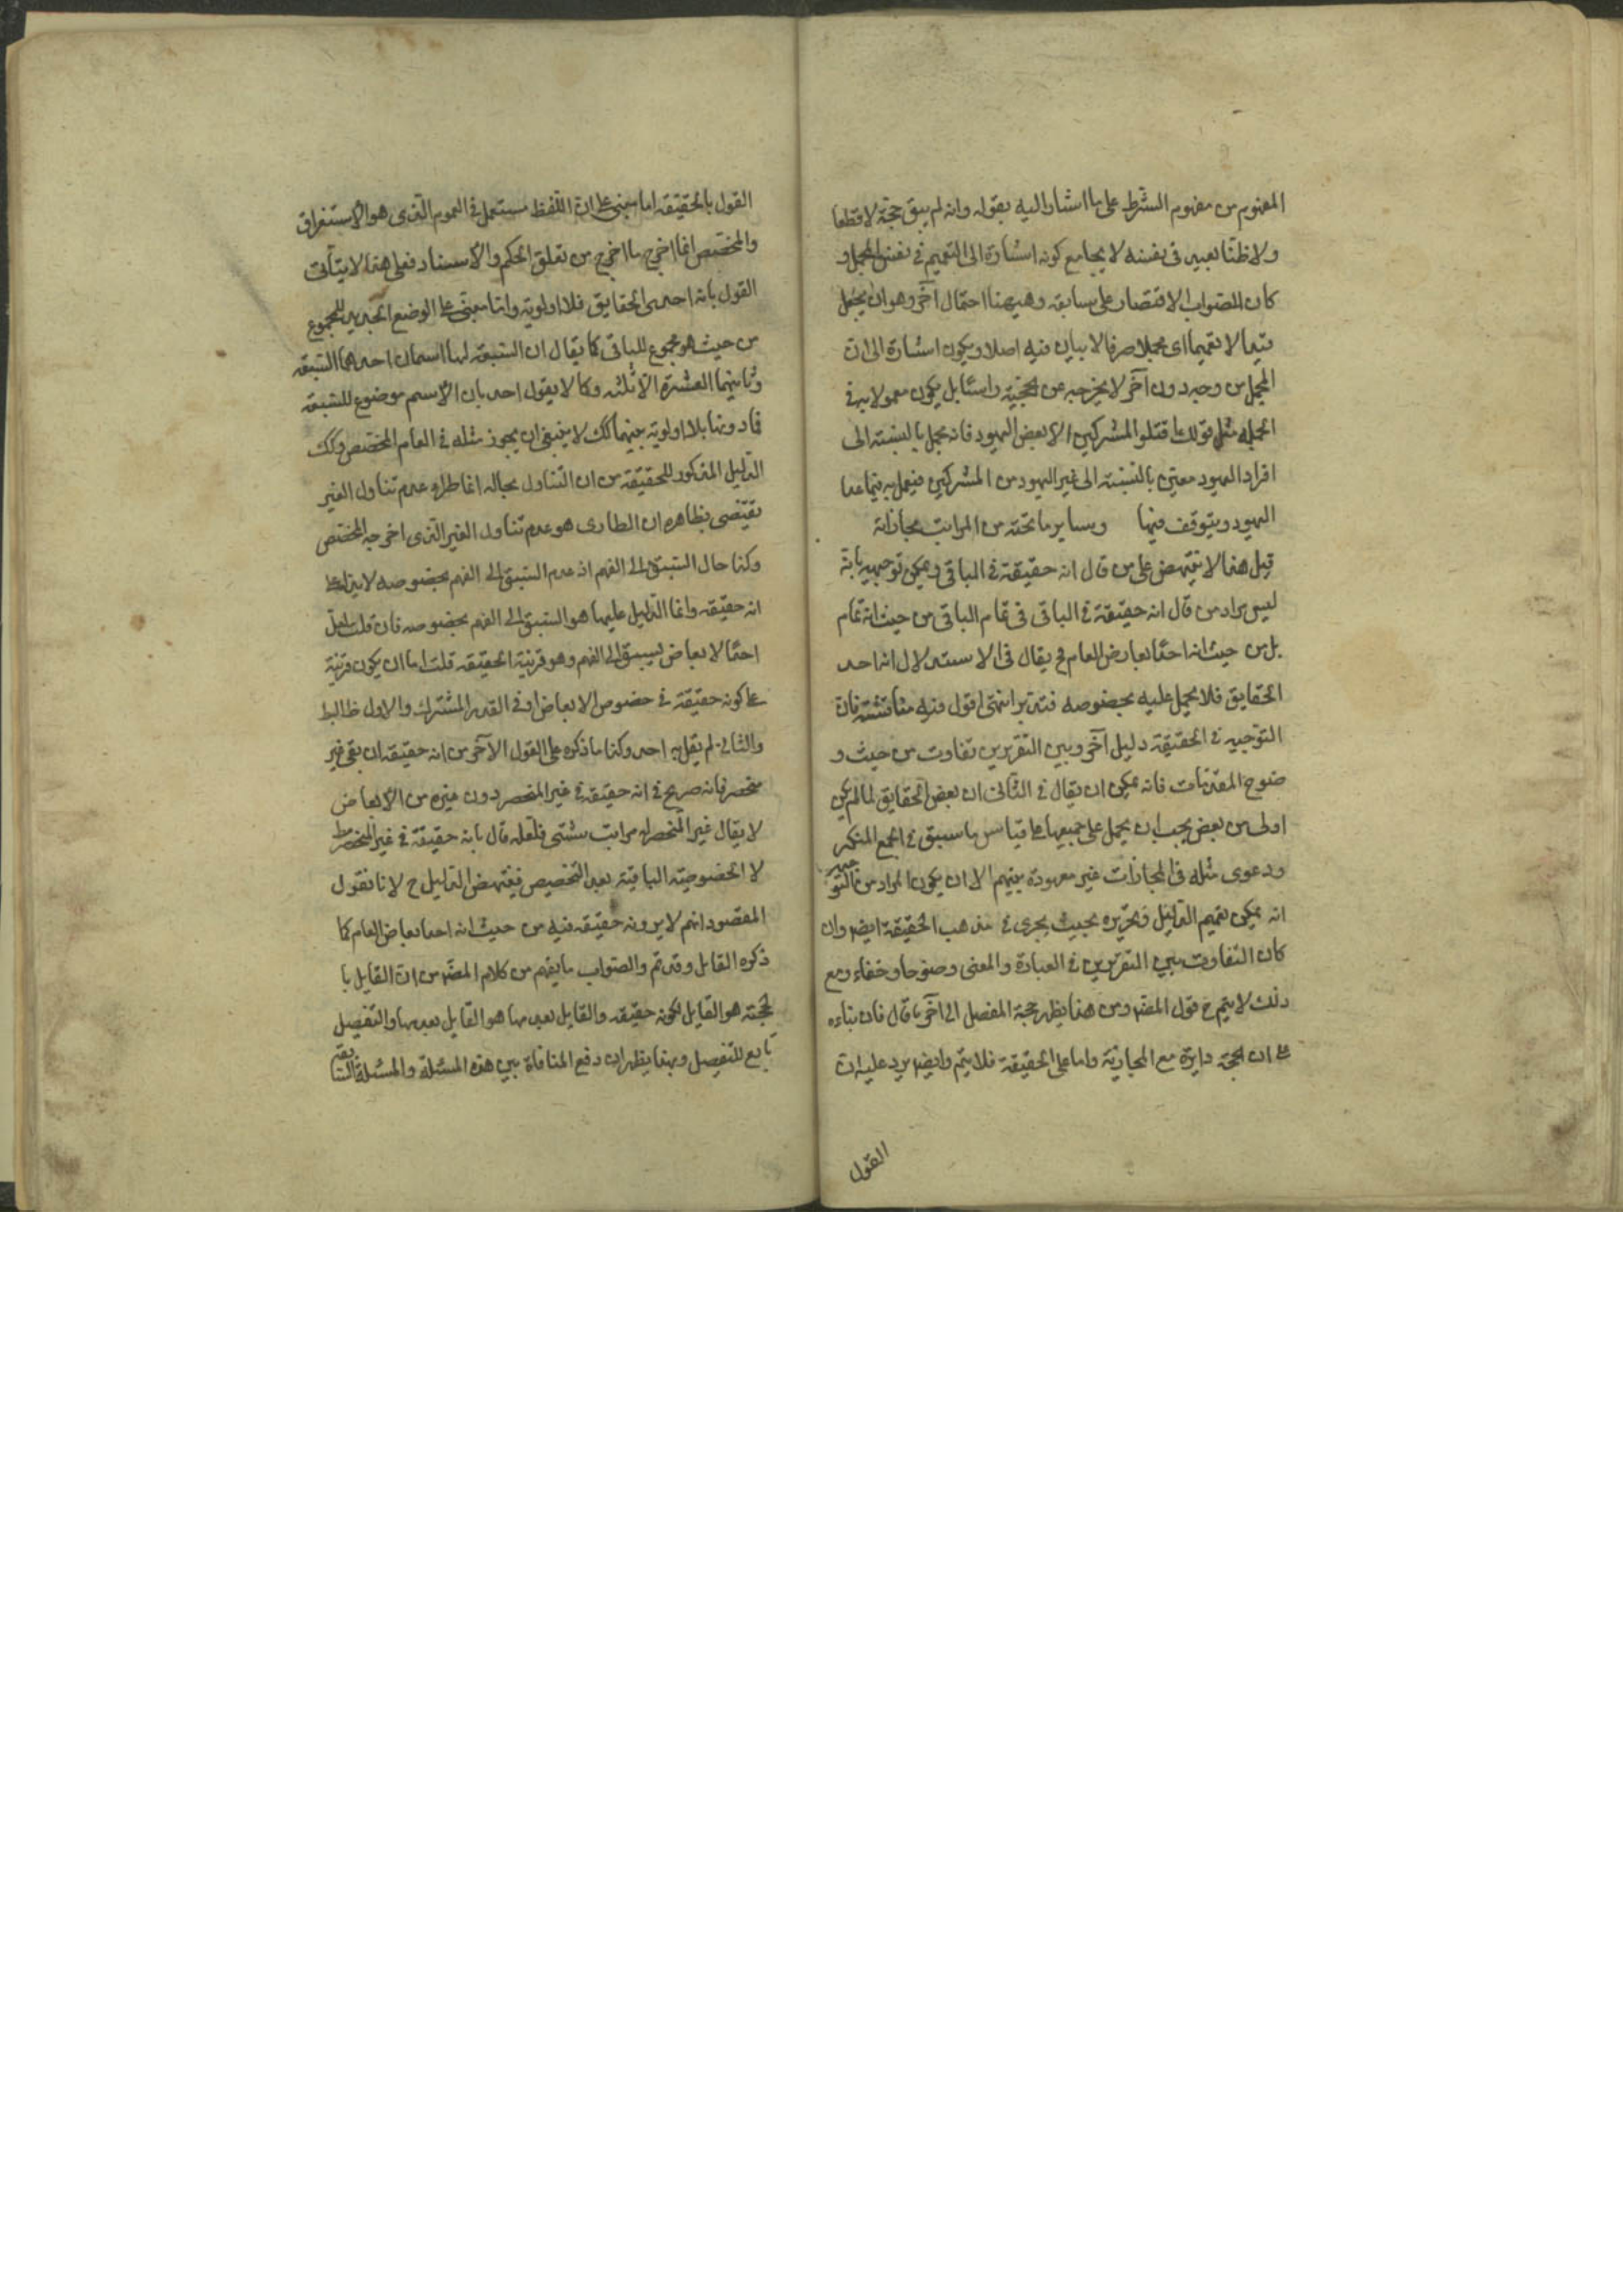 المفهوم من مفهوم الشرط على ما اشار اليه بقوله وانه لم يبق حجة لا قطعا
ولا ظنا بعيد في نفسه لا يجامع كونه اشارة الى التعميم في نفس المجمل و
كان الصواب الاقتصار على سابقه وهيهنا احتمال آخر وهو ان يجعل
قيدا لا تعميما اى مجملا صرفا لا بيان فيه اصلا ويكون اشارة الى ان
المجمل من وجه دون آخر لا يخرجه عن الحجية راسا بل يكون معمولا به في
الجملة مثل قولك اقتلو المشركين الا بعض اليهود فانه مجمل بالنسبته الى
افراد اليهود معين بالنسبته الى غير اليهود من المشركين فيعمل به فيما عدا
اليهود ويتوقف فيها وساير ما تحته من المراتب مجازاته
قيل هذا لا ينتهض على من قال انه حقيقة في الباقى ويمكن توجيهه بانه
ليس مراد من قال انه حقيقة في الباقى فى تمام الباقى من حيث انه تمام
بل من حيث انه احد ابعاض العام فح يقال فى الاستدلال انه احد
الحقايق فلا يحمل عليه بخصوصه فتدبر انتهى اقول فيه مناقشة فان
التوجيه في الحقيقة دليل آخر وبين التقريرين تفاوت من حيث و
ضوح المقدمات فانه يمكن ان يقال في الثانى ان بعض الحقايق لما لم يكن
اولى من بعض يجب ان يحمل على جميعها على قياس ما سبق في الجمع المنكر
ودعوى مثله فى المجازات غير معهودة بينهم الا ان يكون المراد من التوجيه
انه يمكن تعميم الدليل وتحريره بحيث يجرى في مذهب الحقيقة ايضا وان
كان التفاوت بين التقريرين في العبارة والمعنى وضوحا وخفاء ومع
ذلك لا يتم ح قول المص ومن هذا يظهر حجة المفصل الى آخر ما قال فان بناءه
على ان الحجة دايرة مع المجازية واما على الحقيقة فلا يتم وايضا يرد عليه ان
القول
القول بالحقيقه اما مبنى على ان اللفظ مستعمل في العموم الذى هو الاستغراق
والمخصص انما اخرج ما اخرج من تعلق الحكم والاسناد فعلى هذا لا يتأتى
القول بانه احدى الحقايق فلا اولوية واما مبنى على الوضع الجديد للمجموع
من حيث هو مجموع للباقى كما يقال ان السبعة لها اسمان احدهما السبعه
وثانيهما العشرة الا ثلثه وكما لا يقول احد بان الاسم موضوع للسبعه
فما دونها بلا اولوية بينهما كك لا ينبغى ان يجوز مثله في العام المخصص وكك
الدليل المذكور للحقيقة من ان التناول بحاله انما طرأ عدم تناول الغير
يقتضى بظاهره ان الطارى هو عدم تناول الغير الذى اخرجه المخصص
وكذا حال السبق الى الفهم اذ عدم السبق الى الفهم بخصوصه لا يدل على
انه حقيقه وانما الدليل عليها هو السبق الى الفهم بخصوصه فان قلت لعل
احد الابعاض يسبق الى الفهم وهو قرينة الحقيقه قلت اما ان يكون قرينة
على كونه حقيقة في خصوص الابعاض او في القدر المشترك والاول ظ البط
والثانى لم يقل به احد وكذا ما ذكره على القول الآخر من انه حقيقه ان بقى غير
منحصر فانه صريح في انه حقيقة في غير المنحصر دون غيره من الابعاض
لا يقال غير المنحصر له مراتب شتى فلعله قال بانه حقيقة في غير المنحصر ط
لا الخصوصية الباقية بعد التخصيص فينتهض الدليل ح لانا نقول
المقصود انهم لا يرونه حقيقه فيه من حيث انه احد ابعاض العام كما
ذكره القايل وقد تم والصواب ما يفهم من كلام المص من ان القايل با
لحجته هو القايل بكونه حقيقه والقايل بعدمها هو القايل بعدمها والتفصيل
تابع للتفصيل وبهذا يظهر ان دفع المنافاة بين هذه المسئلة والمسئلة السابقة